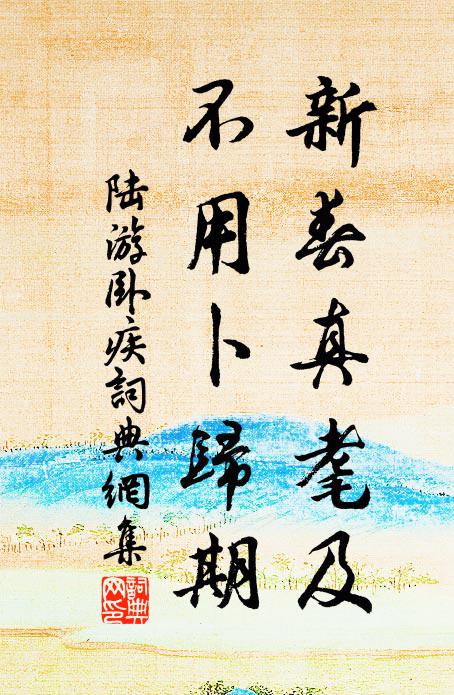 新春真耄及
不用卜歸期
陆游卧疾詞典網集
詞典網印